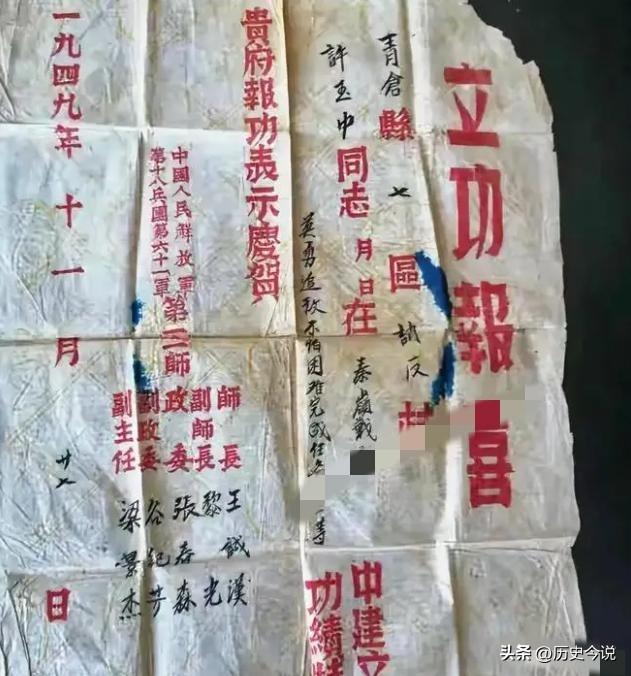 立功報喜
青倉縣七區反村
許玉中同志 月 日在秦嶺戰
中建立
英勇追敌不怕困难完成任务 一等
功績特
貴府報功表示慶賀
中國人民解放軍
第十八兵團第六十一軍
第師
師長 王誠漢
副師長 黎光
政委 張春森
副政委 谷紀芳
副主任 梁景杰
一九四九年十一月廿七日
头条 @历史今说